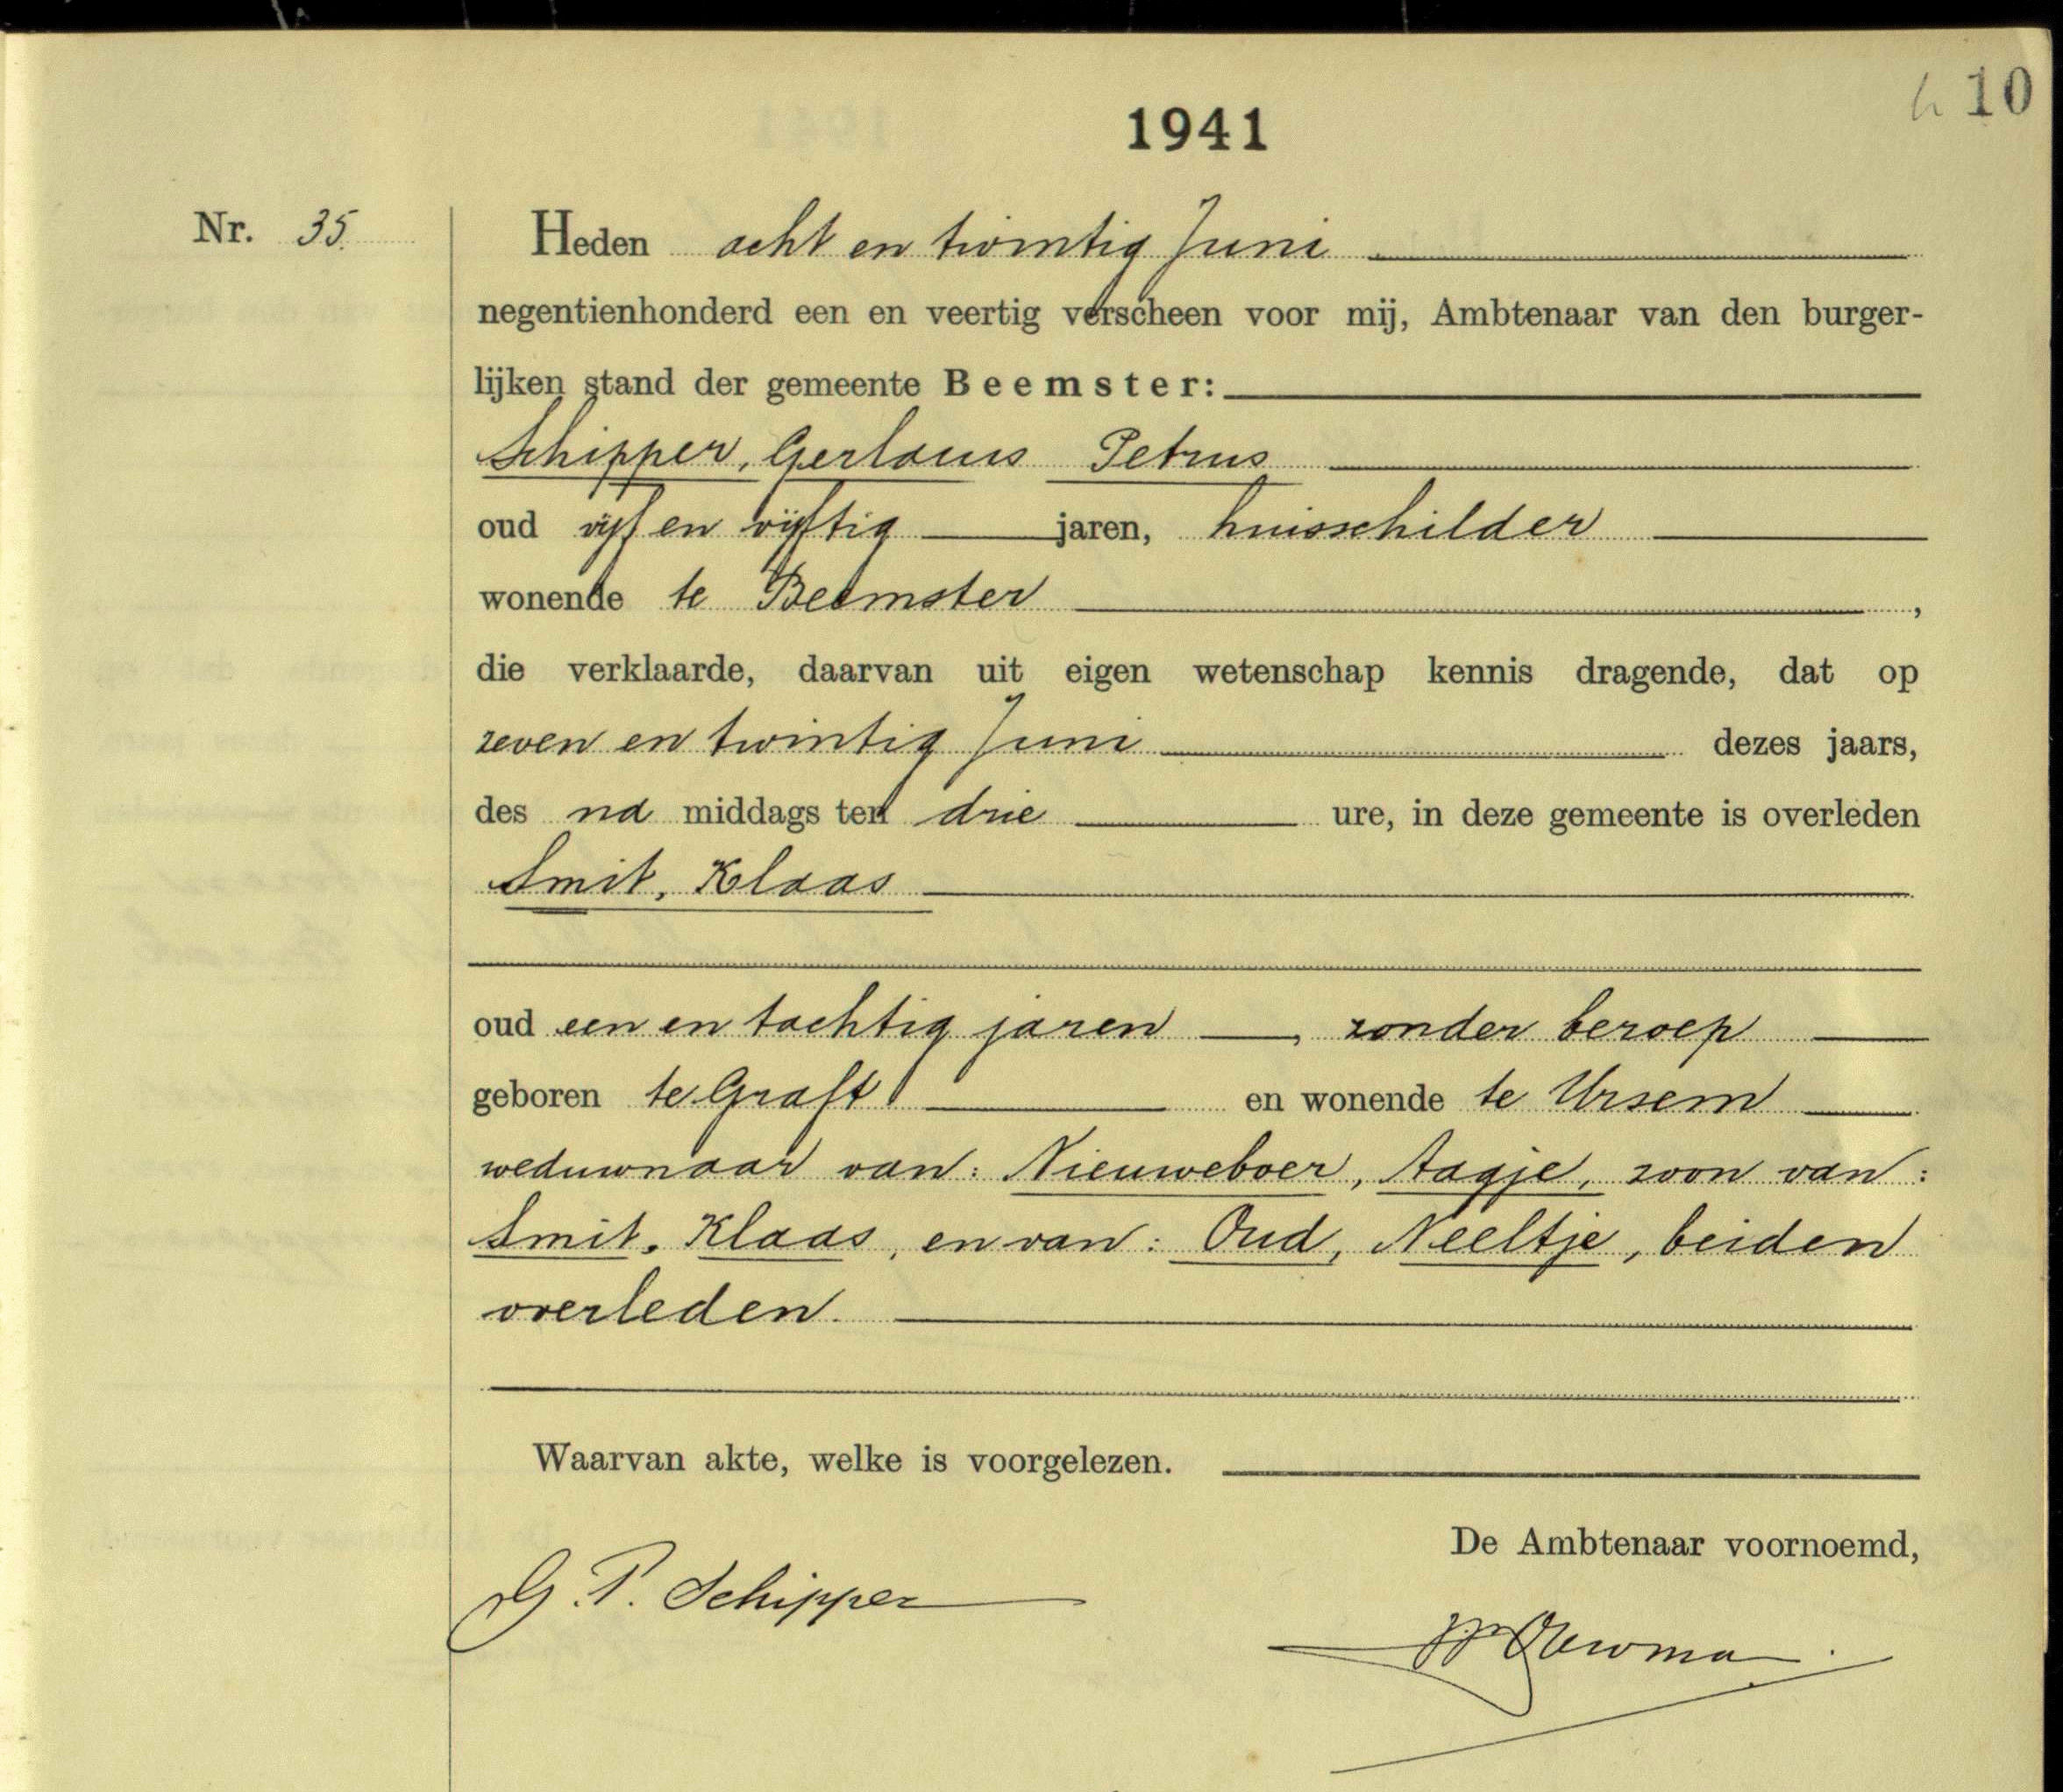 h 10
1941
Nr. 35.
Heden acht en twintig Juni
negentienhonderd een en veertig verscheen voor mij, Ambtenaar van den burger-
lijken stand der gemeente Beemster:
Schipper, Gerlacus Petrus
oud vijf en vijftig jaren, huisschilder
wonende te Beemster,
die verklaarde, daarvan uit eigen wetenschap kennis dragende, dat op
zeven en twintig Juni dezes jaars,
des na middags ten drie ure, in deze gemeente is overleden
Smit, Klaas
oud een en tachtig jaren, zonder beroep
geboren te Graft en wonende te Ursem
weduwnaar van: Nieuweboer, Aagje, zoon van:
Smit, Klaas, en van: Oud, Neeltje, beiden
overleden.
Waarvan akte, welke is voorgelezen.
De Ambtenaar voornoemd,
G. P. Schipper